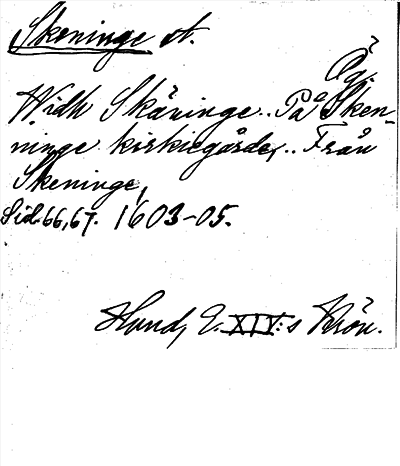 Skeninge st.
Ög.
Widh Skäninge.. På Sken-
ninge kirkiegårde,.. Från
Skeninge,
Sid. 66, 67. 1603-05.
Hund, E. XIV:s Krön.